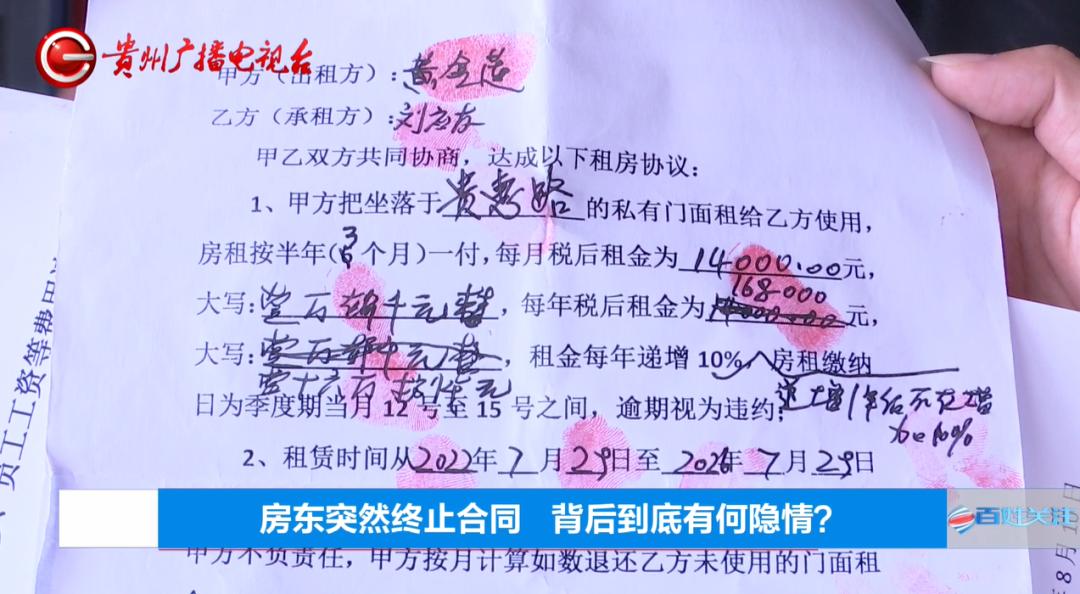 贵州广播电视台
甲方（出租方）：黄金益
乙方（承租方）：刘应友
甲乙双方共同协商，达成以下租房协议：
1、甲方把坐落于贵惠路的私有门面租给乙方使用，
房租按半年(3个月)一付，每月税后租金为14000.00元，
大写：壹万肆千元整，每年税后租金为168000元，
大写：壹万肆千元整，租金每年递增10%，房租缴纳
壹十六万捌仟元
日为季度期当月12号至15号之间，逾期视为违约；递增1年后不递增
为10%
2、租赁时间从2022年7月29日至2026年7月29日
房东突然终止合同 背后到底有何隐情？
百姓关注
甲方不负责任，甲方按月计算如数退还乙方未使用的门面租
员工工资等费用
年8月1
日